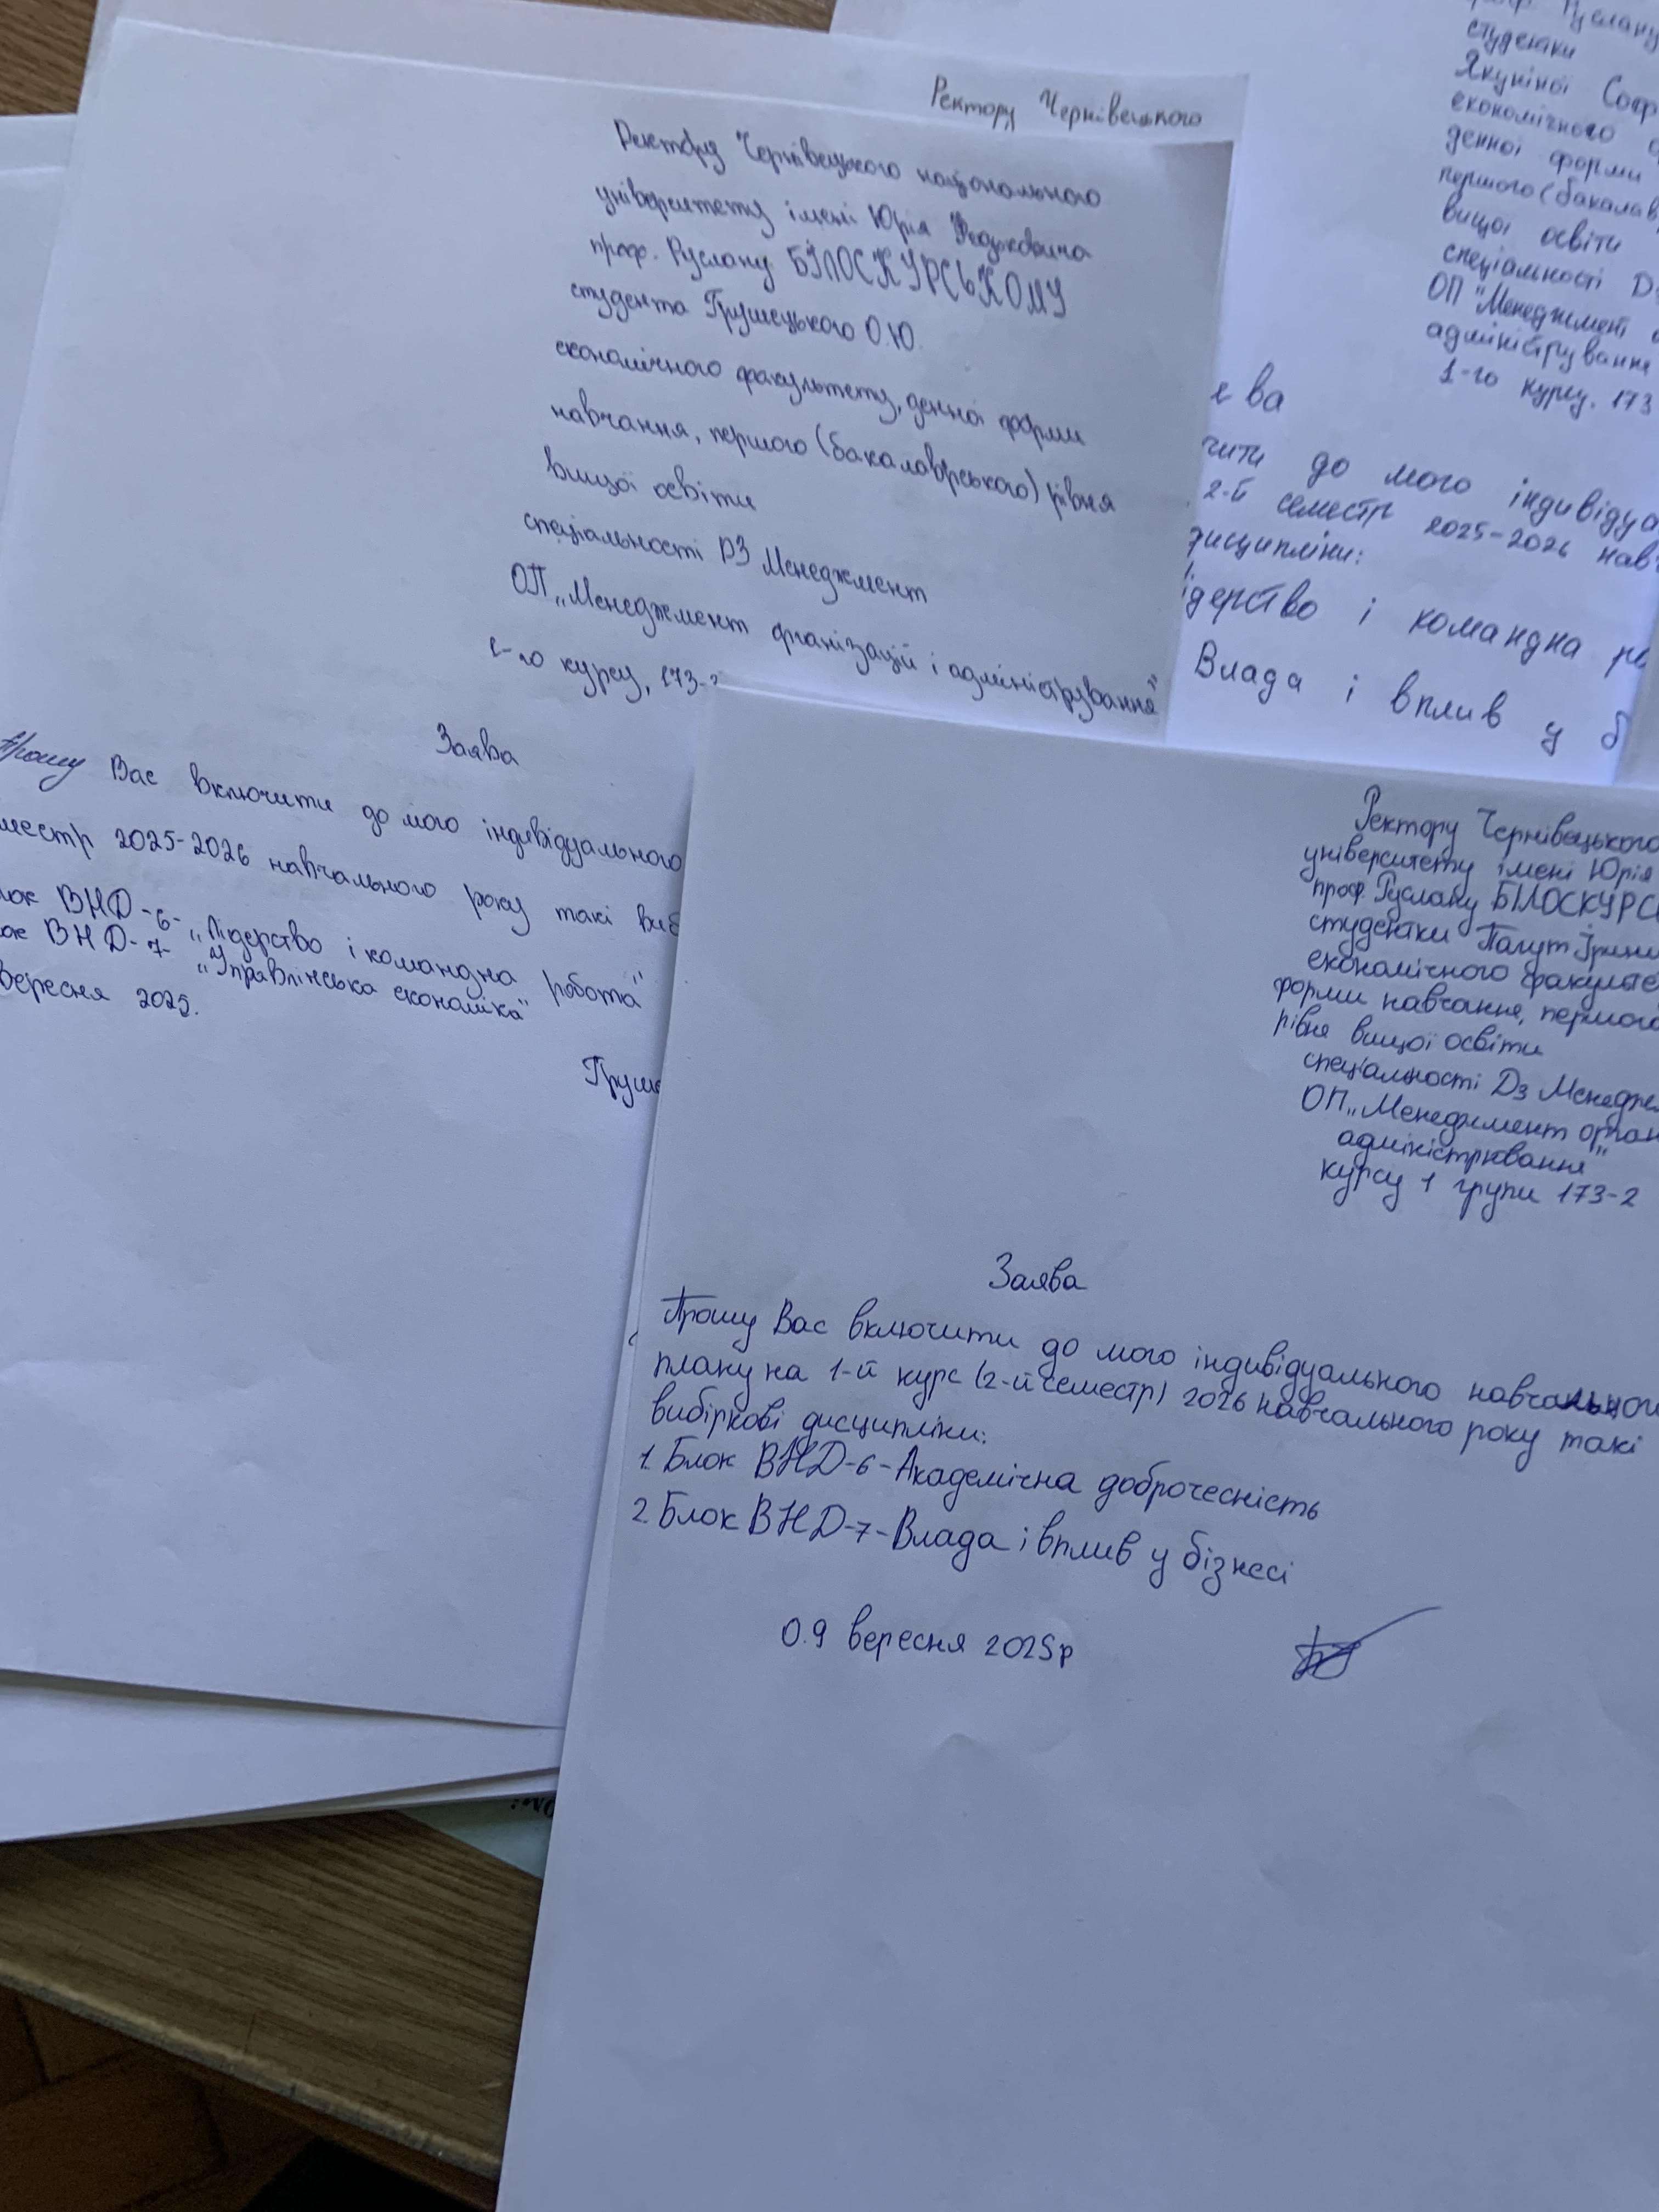 Ректору Чернівецького
Ректору Чернівецького національного
університету імені Юрія Федьковича
проф. Руслану БІЛОСКУРСЬКОМУ
студента Грушецького О.Ю.
економічного факультету, денної форми
навчання, першого (бакалаврського) рівня
вищої освіти
спеціальності D3 Менеджмент
ОП „Менеджмент організацій і адміністрування"
1-го курсу, 173-
Заява
Прошу Вас включити до мого індивідуального
местр 2025-2026 навчального року такі виб
лок ВНД-6- „Лідерство і командна робота"
ок ВНД-7- „Управлінська економіка"
вересня 2025.
Груше
студентки
Якуніної Соф
економічного
денної форми
першого (бакалав
вищої освіти
спеціальності D
ОП "Менеджмент
адміністрування
1-го курсу, 173
ява
чити до мого індивідуа
2-й семестр 2025-2026 нав
дисципліни:
ідерство і командна ро
Влада і вплив у б
Ректору Чернівецького
університету імені Юрія
проф. Руслану БІЛОСКУРС
студентки Палут Ірини
економічного факульте
форми навчання, першого
рівня вищої освіти
спеціальності D3 Менедже
ОП „Менеджмент орган
адміністрювання"
курсу 1 групи 173-2
Заява
Прошу Вас включити до мого індивідуального навчальног
плану на 1-й курс (2-й семестр) 2026 навчального року такі
вибіркові дисципліни:
1. Блок ВНД-6-Академічна доброчесність
2. Блок ВНД-7-Влада і вплив у бізнесі
0.9 вересня 2025р